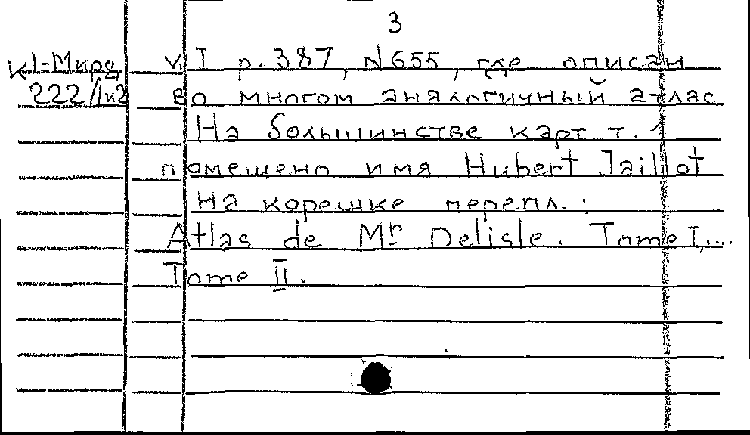 3
К1-Мира v. I p. 387, N 655, где описан
222/1и2 во многом аналогичный атлас
На большинстве карт т. 1
помещено имя Hubert Jaillot
На корешке перепл. :
Atlas de Mr Delisle. Tome I,...
Tome II.